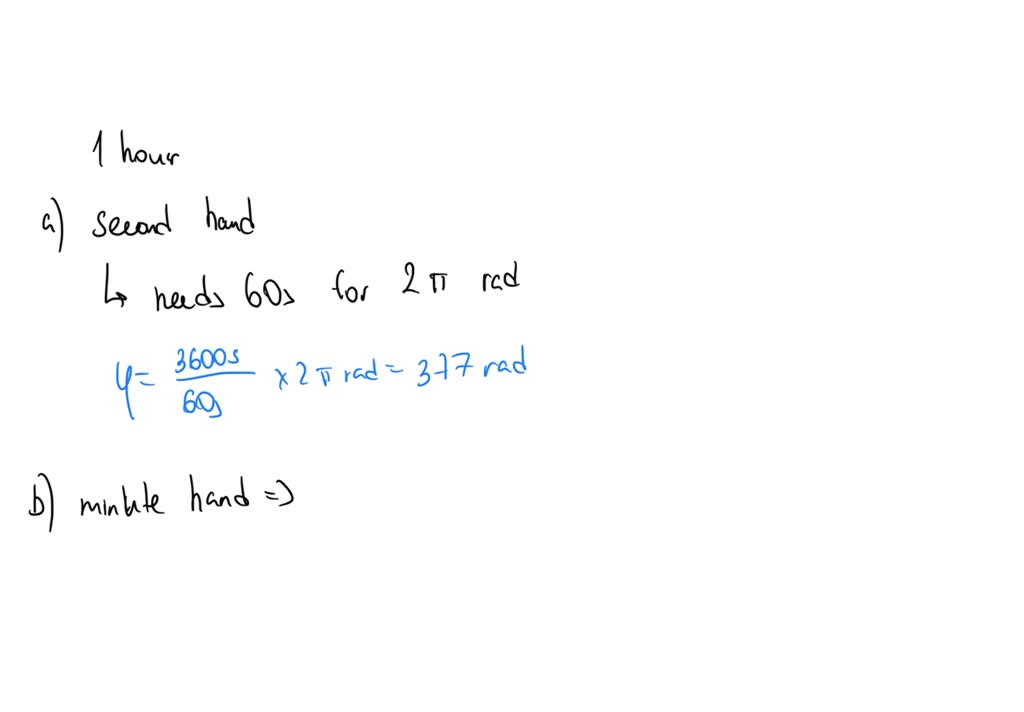 1 hour
a) second hand
↳ needs 60s for 2π rad
φ = 3600s / 60s × 2π rad = 377 rad
b) minute hand =>